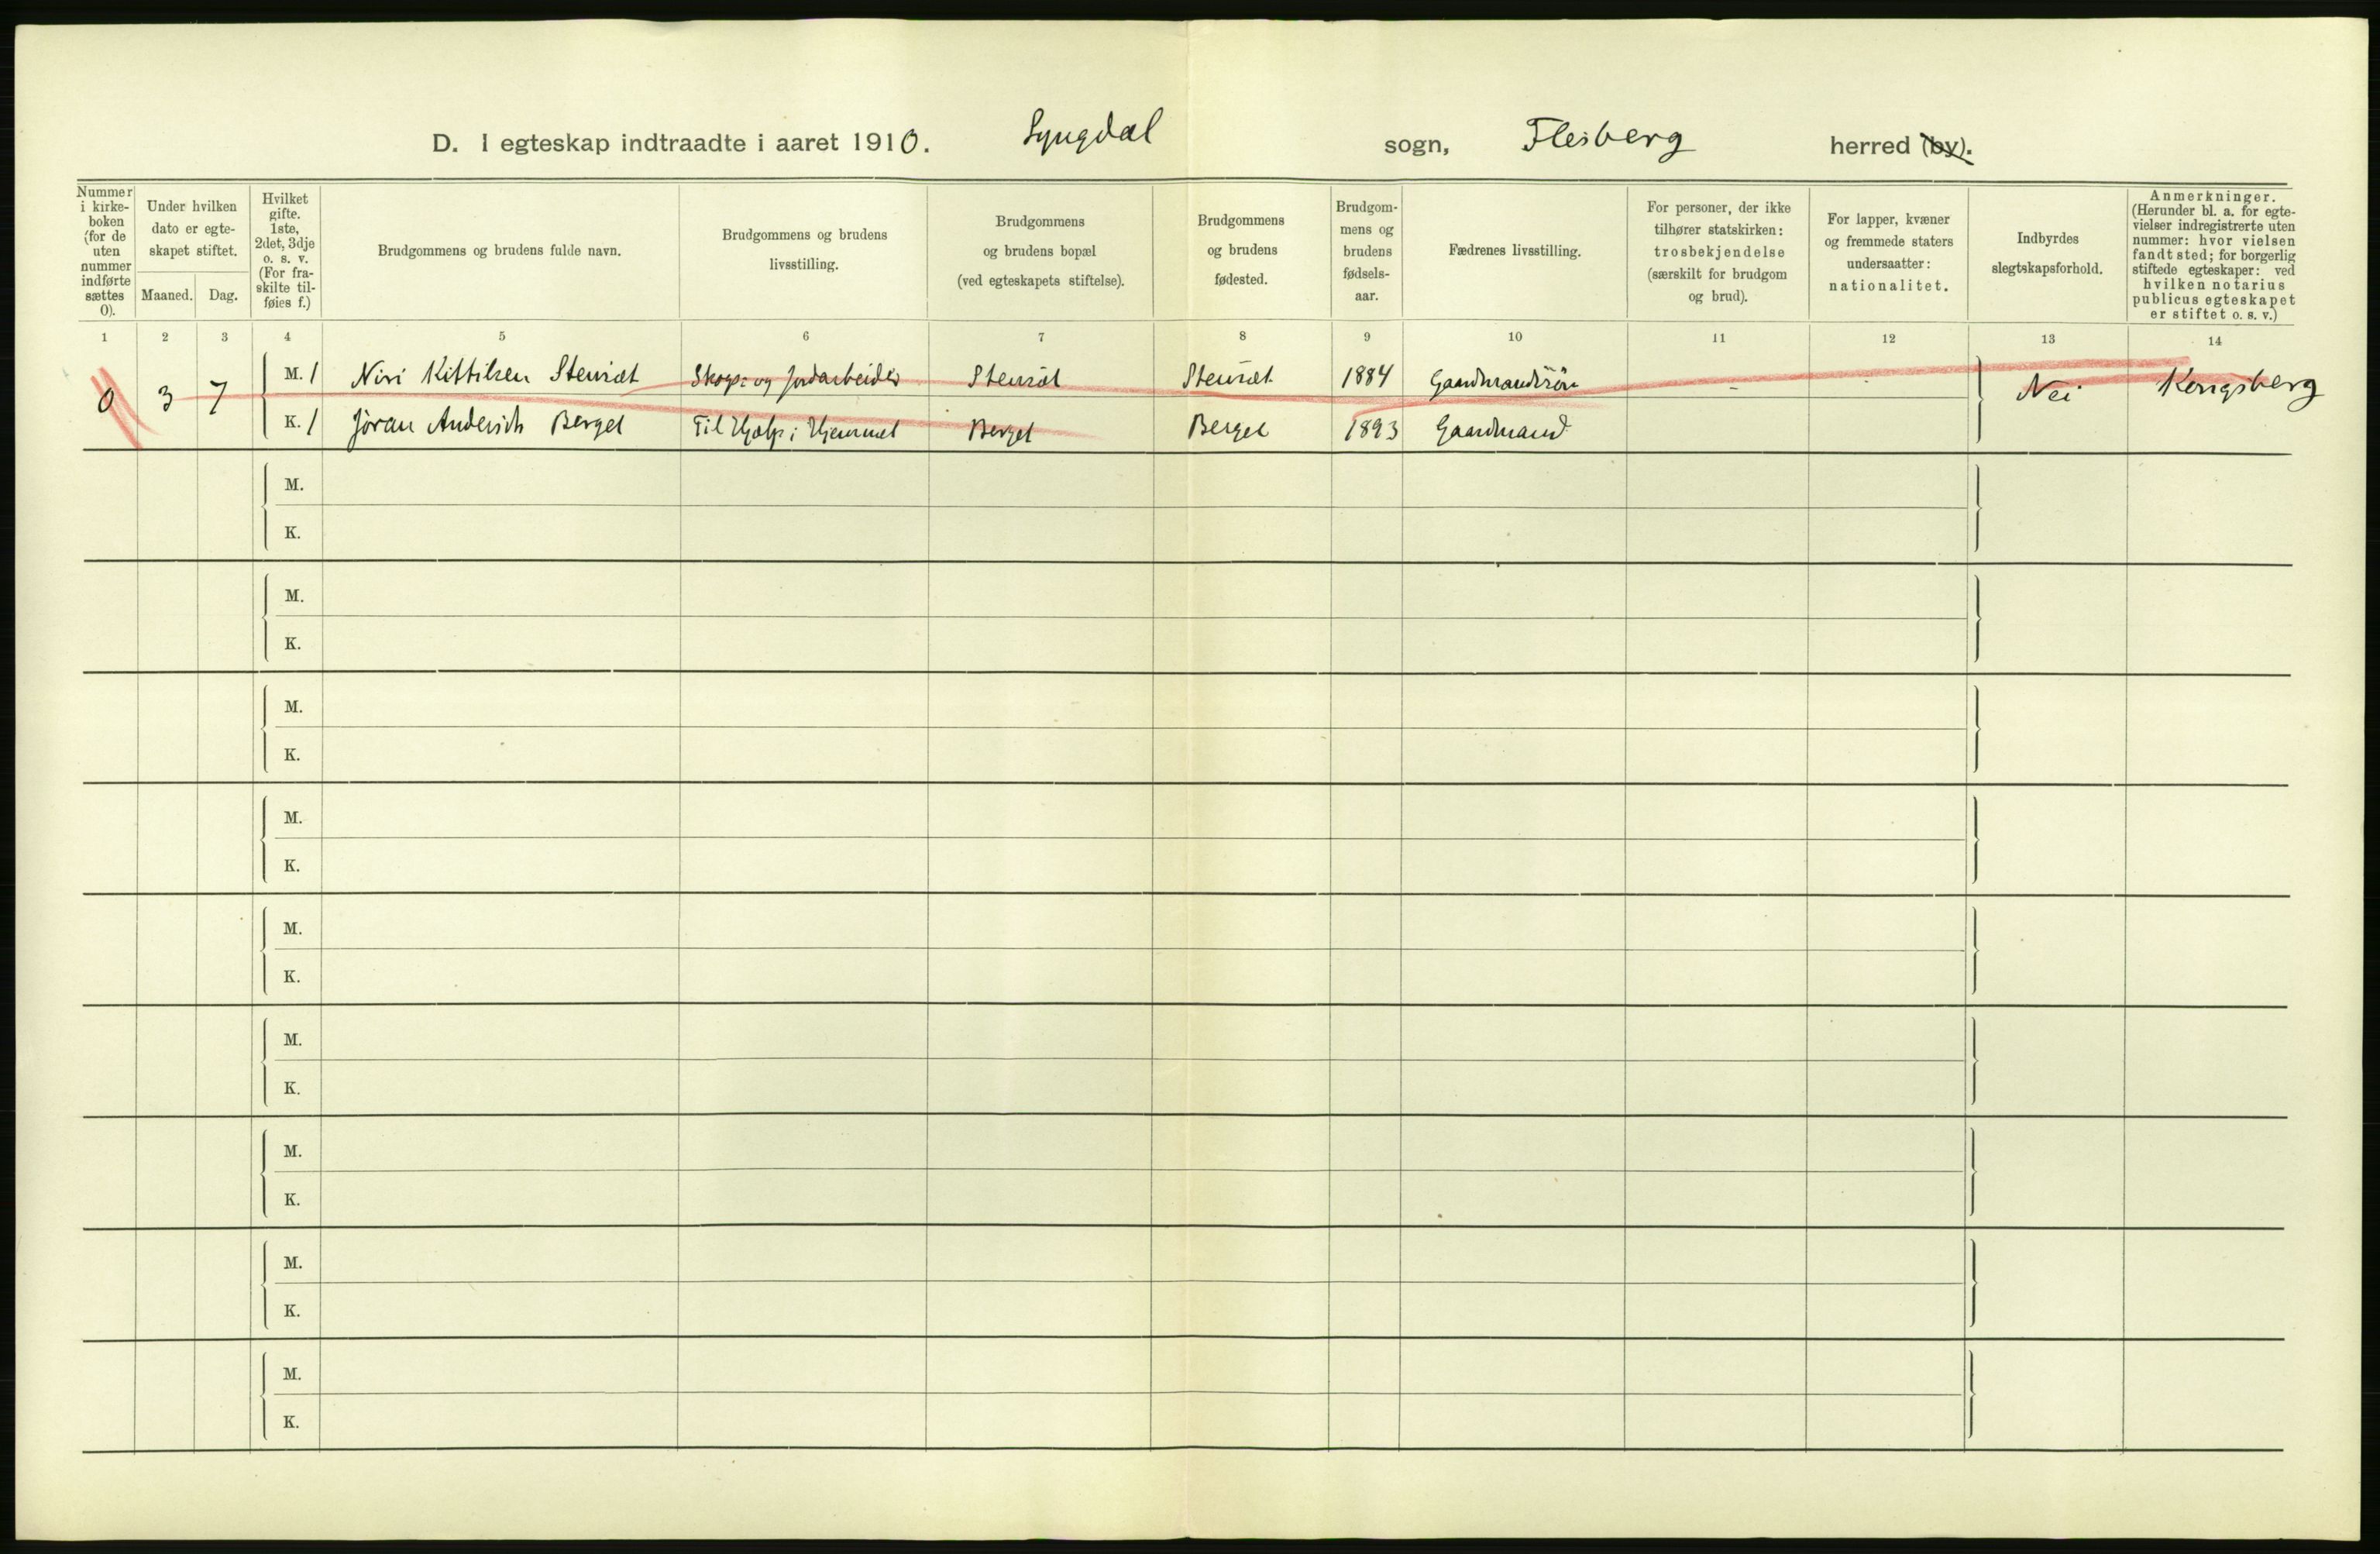 D. I egteskap indtraadte i aaret 1910. Lyngdal sogn, Flesberg herred (by).
Nummer i kirke-boken (for de uten nummer indførte sættes 0).
Under hvilken dato er egte-skapet stiftet.
Maaned. Dag.
Hvilket gifte. 1ste, 2det, 3dje o. s. v. (For fra-skilte til-føies f.)
Brudgommens og brudens fulde navn.
Brudgommens og brudens livsstilling.
Brudgommens og brudens bopæl (ved egteskapets stiftelse).
Brudgommens og brudens fødested.
Brudgom-mens og brudens fødsels-aar.
Fædrenes livsstilling.
For personer, der ikke tilhører statskirken: trosbekjendelse (særskilt for brudgom og brud).
For lapper, kvæner og fremmede staters undersaatter: nationalitet.
Indbyrdes slegtskapsforhold.
Anmerkninger. (Herunder bl. a. for egte-vielser indregistrerte uten nummer: hvor vielsen fandt sted; for borgerlig stiftede egteskaper: ved hvilken notarius publicus egteskapet er stiftet o. s. v.)
1 2 3 4 5 6 7 8 9 10 11 12 13 14
0 3 7 M. 1 Kittilsen Stensæt Skogs- og Jordarbeider Stensæt Stensæt 1884 - Nei Kongsberg
K. 1 Jøran Andersdt Berget Til Hjælp i Hjemmet Berget Berget 1893 Gaardmand
M.
K.
M.
K.
M.
K.
M.
K.
M.
K.
M.
K.
M.
K.
M.
K.
M.
K.